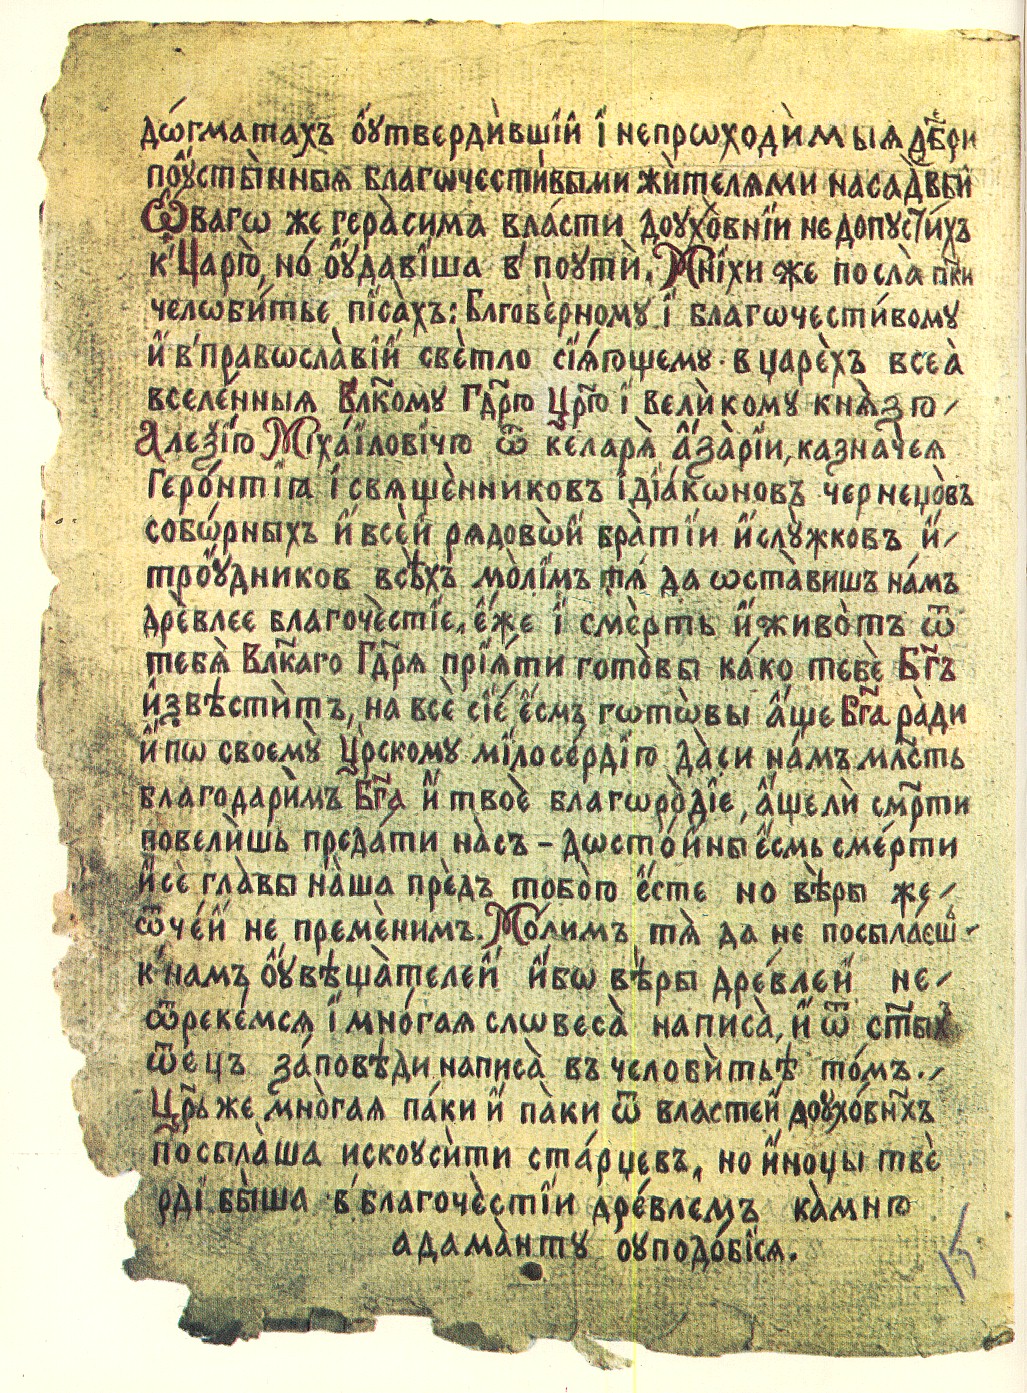 дѡ́гматахъ оу҆тверди̇вшїй і҆ непрѡходи̇мыя дє́бри
пꙋстынныя благѡчести́выми жи̇телями насадвый
Ѡ҆вагѡ же гера̀сима вла́сти дꙋхо̀внїи не допусти́хъ
к' Царю̀, но̀ оу҆дави̇ша в' поути̇. Мні̇хи же посла паки
челѡби́тье пі́сахъ: Блговѐрному і҆ благѡчести́вому
и҆ в' правѡсла̀вїи свѐтло сїя́ющему в царѐхъ всеа̀
вселе́нныя Влк҃ому Гдр҃ю Цр҃ю і҆ вели̇кому кня̀зю
Алеѯі̇ю Мїха́іловічю ѿ келаря̀ а҆за̀рїи, казначе́я
Геро́нтїя і҆ свящѐнниковъ і҆ дїа́кѡновъ чернецо̀въ
собѡ́рныхъ и҆ все̇й рядово̀й бра̀тїи и҆ слу̀жковъ и҆
тро́удников всѣ́хъ мо̀лімъ тя̀ да ѡста̀вишъ на́мъ
дрѐвлее благоче̇стїе, е҆́же і҆ смѐрть и҆ живо̀тъ ѿ
тебя̀ Влк҃аго Гдр҃я прїя́ти гото̀вы ка́ко тебѐ Бг҃ъ
и҆звѣстѝтъ, на всѐ сїѐ е҆́смъ гѡтѡ̀вы а҆́ще Бг҃а ра̀ди
и҆ пѡ своемꙋ̀ цр҃скому мілосе́рдїю да̀си на́мъ млс҃ть
благодари̇мъ Бг҃а и҆ твоѐ благѡро̀дїе, а҆́ще ли̇ смр҃ти
повели̇шь преда́ти на̀съ – дѡсто́йны е҆́смь сме́рти
и҆ сѐ гла̀вы на̀ша прѐдъ тобо̀ю е҆́сте но вѣ̀ры же
ѿче́й не премѐнимъ. Мо́лимъ тя̀ да не посылаеш
к' намъ оу҆вѣща̀телей и҆́бѡ вѣ̀ры дре́влей не
ѿреке́мся і҆ мно́гая слѡвеса̀ написа̀, и҆ ѿ ст҃ыхъ
ѿе́цъ за́повѣди написа̀ въ человѝтьѣ то́мъ.
Цр҃ь же мно̀гая па́ки и҆ па̀ки ѿ властей доухо́вныхъ
посыла̀ша искоуси̇ти ста́рцевъ, но и҆́ноцы тве
рді бы̀ша в' благоче̇стїи дре́влемъ ка̀мню
адама̀нту оуподо́бїся.
15